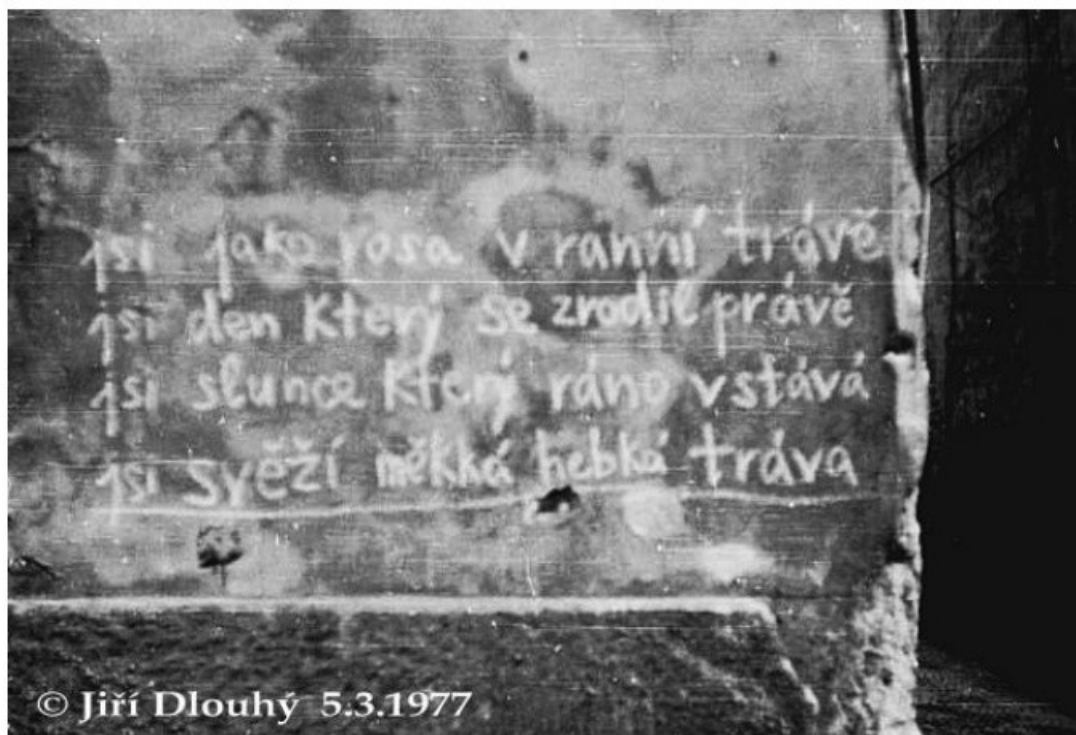 jsi jako rosa v ranní trávě
jsi den který se zrodil právě
jsi slunce který ráno vstává
jsi svěží měkká hebká tráva
© Jiří Dlouhý 5.3.1977